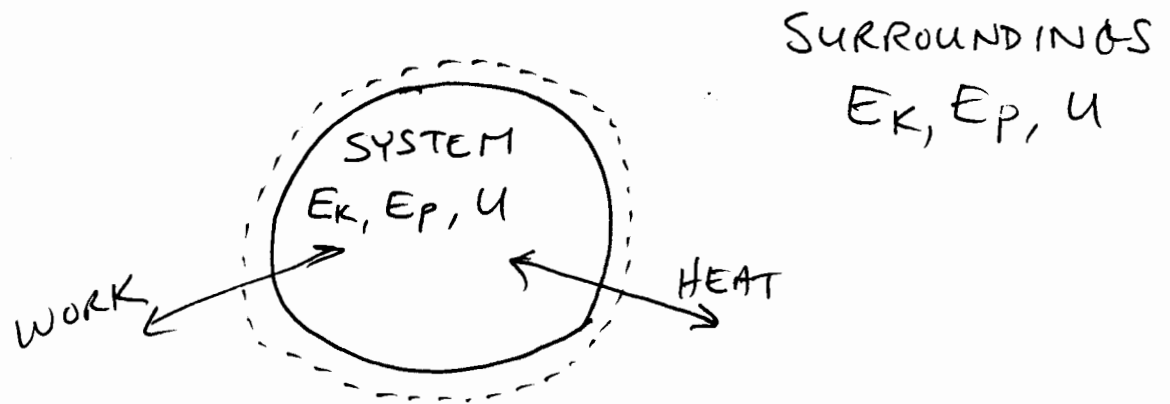 SURROUNDINGS
EK, EP, U
SYSTEM
EK, EP, U
WORK
HEAT